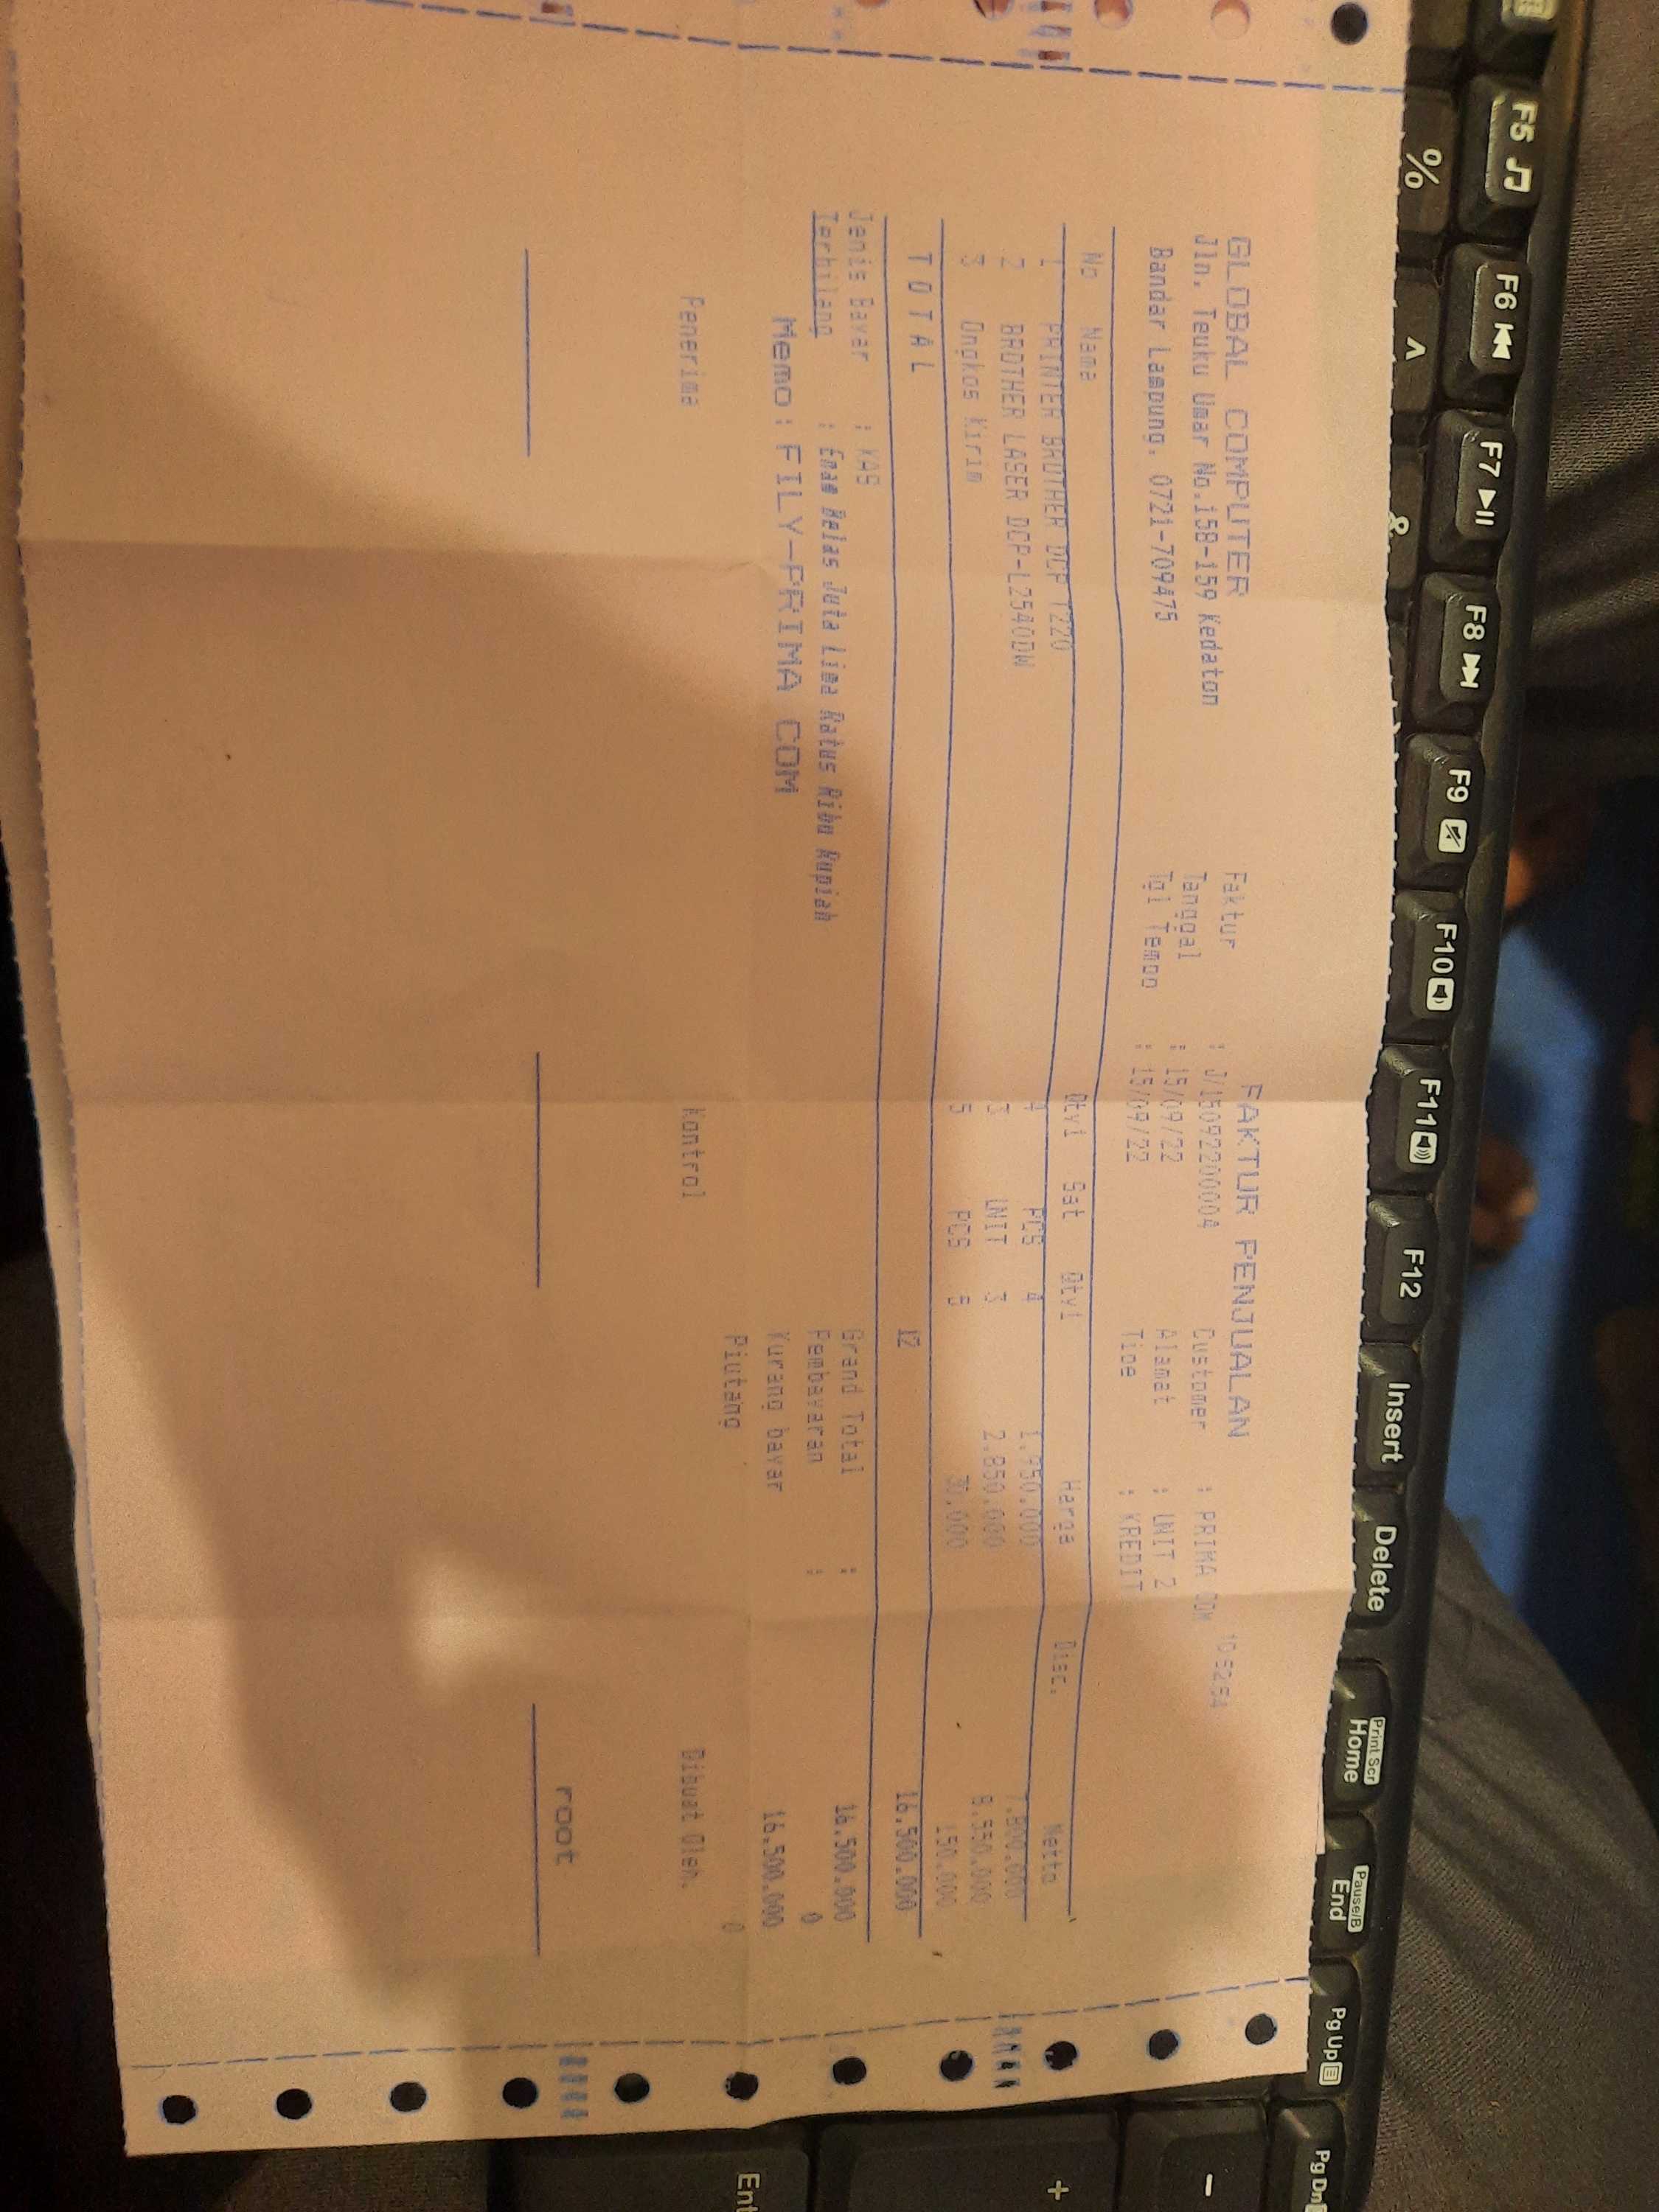 GLOBAL COMPUTER
Jln. Teuku Umar No.158-159 Kedaton
Bandar Lampung. 0721-709475
FAKTUR PENJUALAN
Faktur : J/1509220004
Tanggal : 15/09/22
Tgl Tempo : 15/09/22
Customer : PRIMA COM
Alamat : UNIT 2
Tipe : KREDIT
No Nama Qty1 Sat Qty1 Harga Disc. Netto
1 PRINTER BROTHER DCP T220 4 PCS 4 1.950.000 7.800.000
2 BROTHER LASER DCP-L2540DW 3 UNIT 3 2.850.000 8.550.000
3 Ongkos Kirim 5 PCS 5 30.000 150.000
T O T A L 12 16.500.000
Jenis Bayar : KAS
Terbilang : Enam Belas Juta Lima Ratus Ribu Rupiah
Memo : FILY-PRIMA COM
Grand Total : 16.500.000
Pembayaran : 0
Kurang bayar 16.500.000
Piutang 0
Penerima Kontrol Dibuat Oleh,
root
F5
F6
F7
F8
F9
F10
F11
F12
Insert
Delete
Print Scr
Home
Pause/B
End
Pg Up
Pg Dn
%
^
&
-
+
Ent